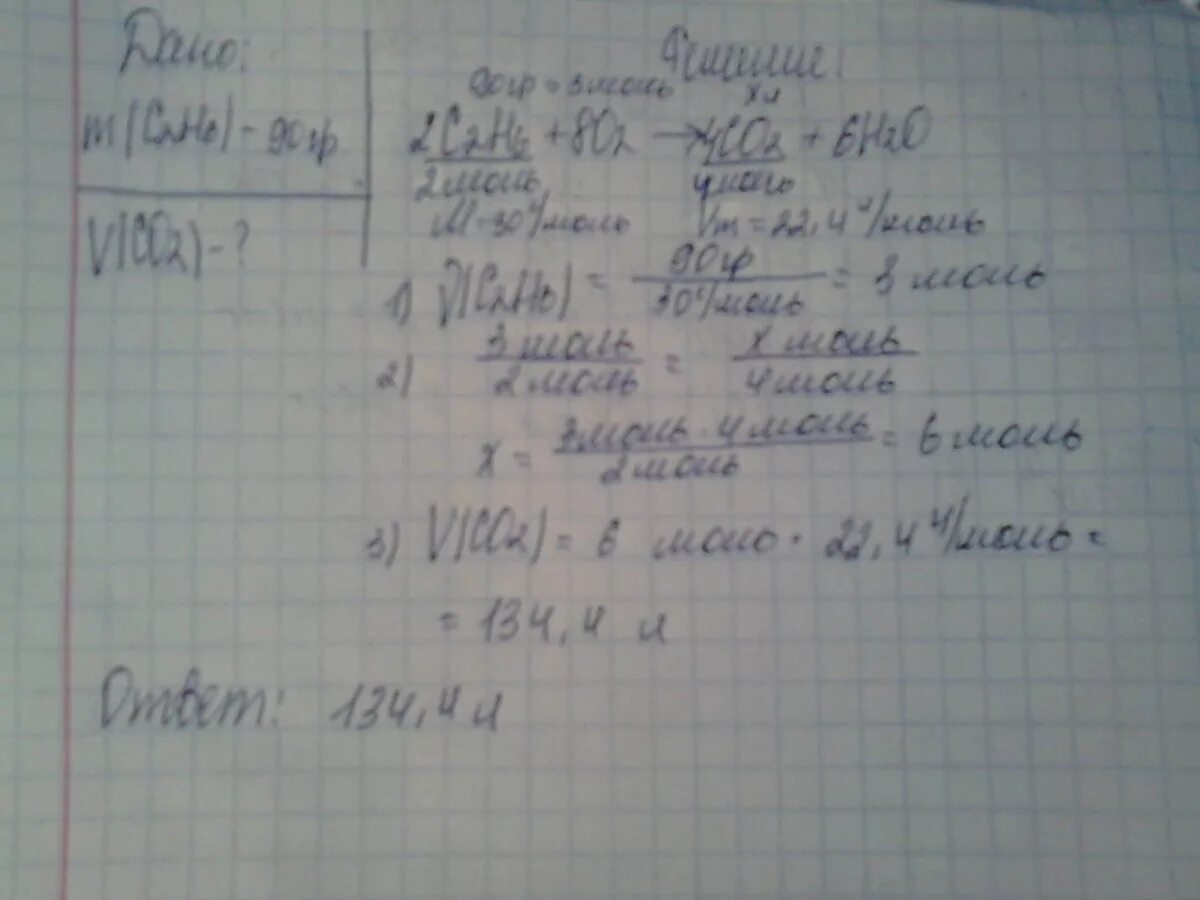 Дано: Решение:
90гр = 3моль х л
m(C2H6) - 90гр 2C2H6 + 8O2 → 4CO2 + 6H2O
2моль 4моль
V(CO2) - ? M=30г/моль Vm = 22,4 л/моль
1) ν(C2H6) = 90гр / 30г/моль = 3 моль
2) 3моль / 2моль = х моль / 4моль
х = 3моль · 4моль / 2моль = 6моль
3) V(CO2) = 6 моль · 22,4 л/моль =
= 134,4 л
Ответ: 134,4 л